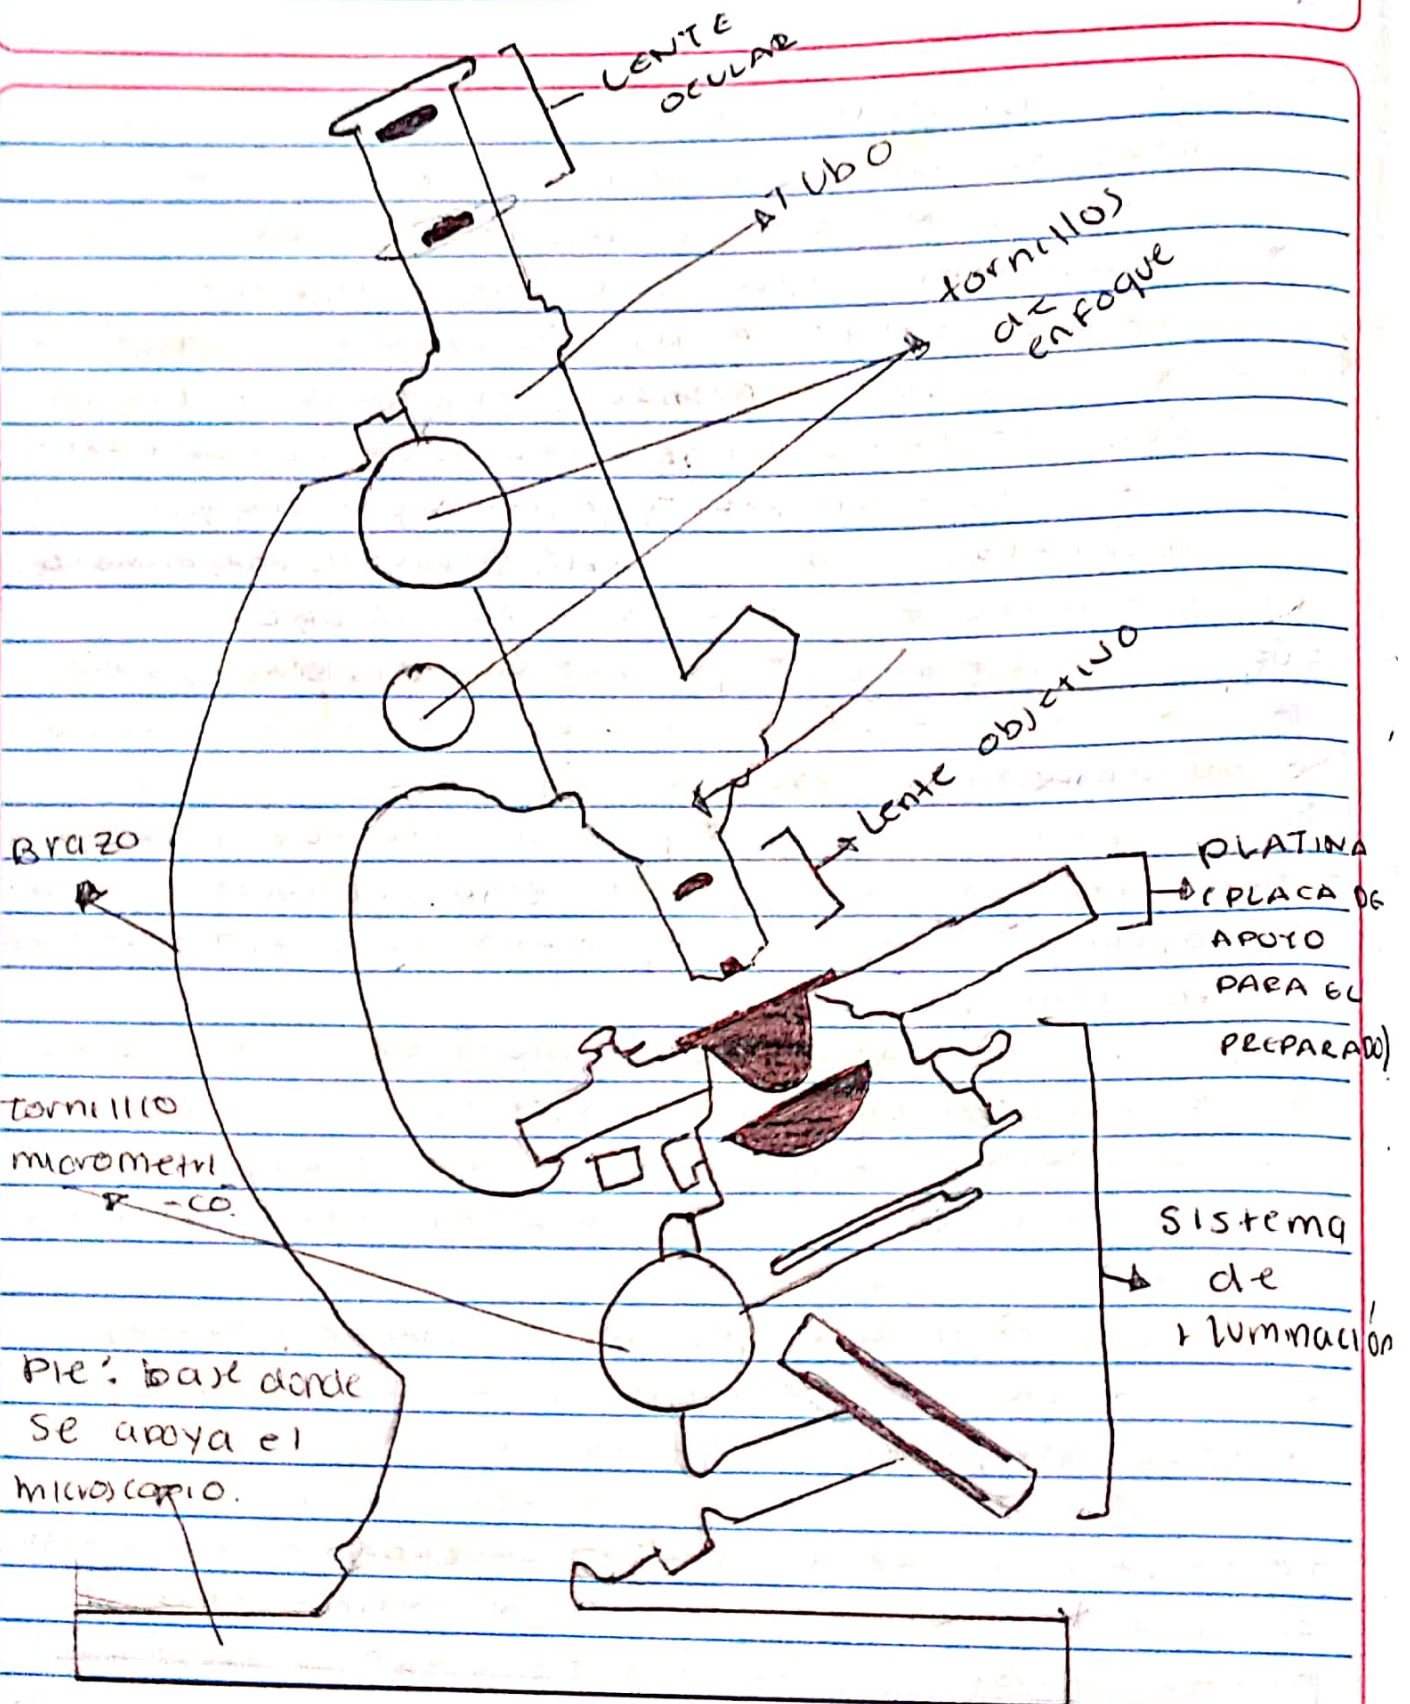 LENTE
OCULAR
TUbO
tornillos
de
enfoque
Lente objetivo
Brazo
PLATINA
(PLACA DE
APOYO
PARA EL
PREPARADO)
tornillo
micrometri
-co.
sistema
de
iluminación
Pie: base donde
se apoya el
microscopio.